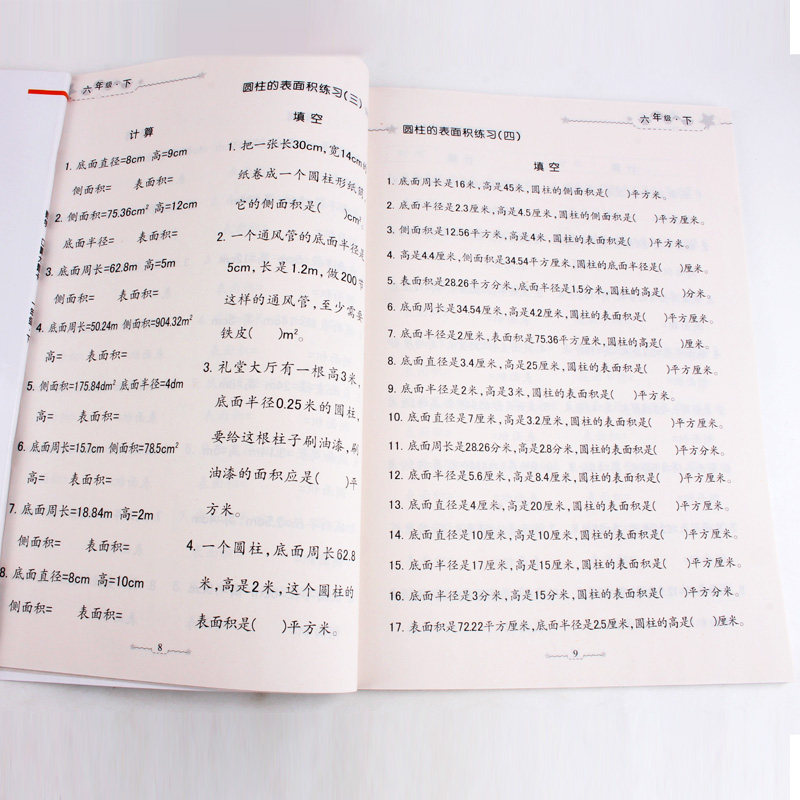 六年级·下
圆柱的表面积练习(三)
计算
1. 底面直径=8cm 高=9cm
侧面积= 表面积=
2. 侧面积=75.36cm² 高=12cm
底面半径= 表面积=
3. 底面周长=62.8m 高=5m
侧面积= 表面积=
4. 底面周长=50.24m 侧面积=904.32m²
高= 表面积=
5. 侧面积=175.84dm² 底面半径=4dm
高= 表面积=
6. 底面周长=15.7cm 侧面积=78.5cm²
高= 表面积=
7. 底面周长=18.84m 高=2m
侧面积= 表面积=
8. 底面直径=8cm 高=10cm
侧面积= 表面积=
填空
1. 把一张长30cm,宽14cm的
纸卷成一个圆柱形纸筒,
它的侧面积是( )cm²。
2. 一个通风管的底面半径是
5cm,长是1.2m,做200节
这样的通风管,至少需要
铁皮( )m²。
3. 礼堂大厅有一根高3米,
底面半径0.25米的圆柱,
要给这根柱子刷油漆,刷
油漆的面积应是( )平
方米。
4. 一个圆柱,底面周长62.8
米,高是2米,这个圆柱的
表面积是( )平方米。
8
六年级·下
圆柱的表面积练习(四)
填空
1. 底面周长是16米,高是45米,圆柱的侧面积是( )平方米。
2. 底面半径是2.3厘米,高是4.5厘米,圆柱的侧面积是( )平方厘米。
3. 侧面积是12.56平方米,高是4米,圆柱的表面积是( )平方米。
4. 高是4.4厘米,侧面积是34.54平方厘米,圆柱的底面半径是( )厘米。
5. 表面积是28.26平方分米,底面半径是1.5分米,圆柱的高是( )分米。
6. 底面周长是34.54厘米,高是4.2厘米,圆柱的侧面积是( )平方厘米。
7. 底面半径是2厘米,表面积是75.36平方厘米,圆柱的高是( )厘米。
8. 底面直径是3.4厘米,高是25厘米,圆柱的侧面积是( )平方厘米。
9. 底面半径是2米,高是3米,圆柱的表面积是( )平方米。
10. 底面直径是7厘米,高是3.2厘米,圆柱的侧面积是( )平方厘米。
11. 底面周长是28.26分米,高是2.8分米,圆柱的侧面积是( )平方分米。
12. 底面半径是5.6厘米,高是8.4厘米,圆柱的侧面积是( )平方厘米。
13. 底面直径是4厘米,高是20厘米,圆柱的表面积是( )平方厘米。
14. 底面直径是10厘米,高是10厘米,圆柱的表面积是( )平方厘米。
15. 底面半径是17厘米,高是15厘米,圆柱的侧面积是( )平方厘米。
16. 底面半径是3分米,高是15分米,圆柱的表面积是( )平方分米。
17. 表面积是72.22平方厘米,底面半径是2.5厘米,圆柱的高是( )厘米。
9